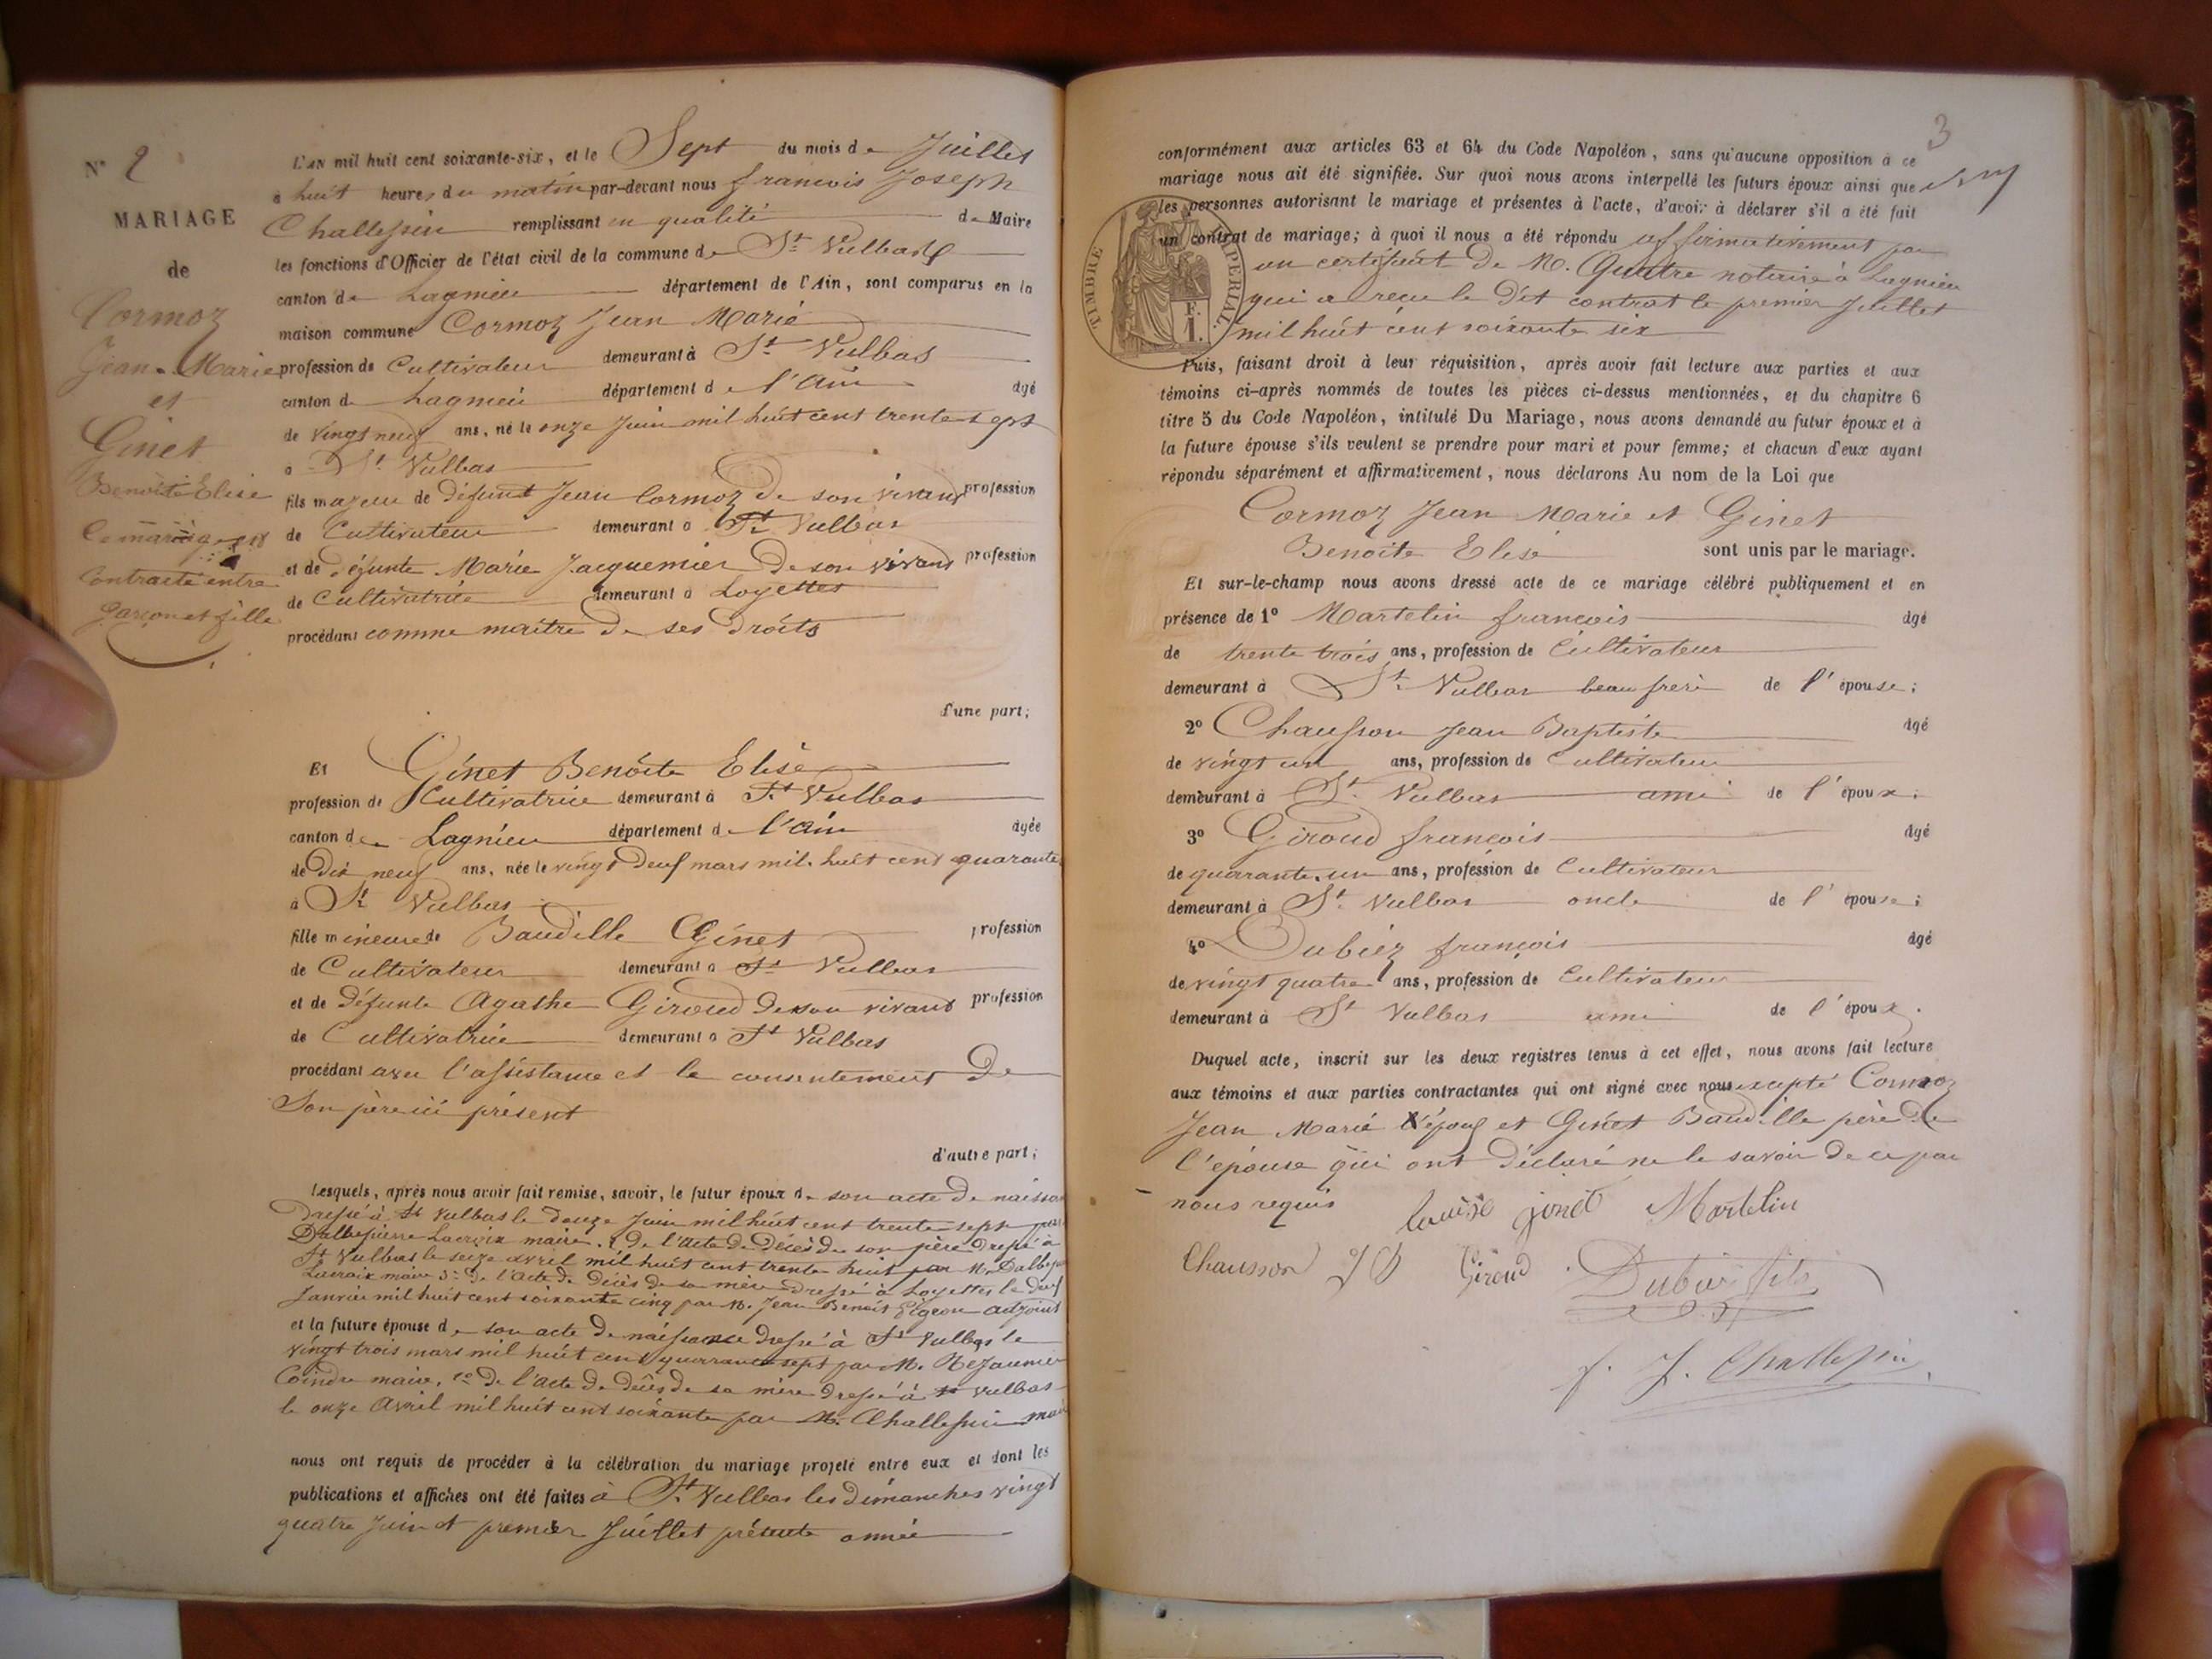 Nº 2
MARIAGE
de
Cormoz
Jean-Marie
et
Ginet
Benoîte Elise
Ce mariage est
Contracté entre
garçon et fille
L'AN mil huit cent soixante-six, et le Sept du mois de Juillet
à huit heures du matin par-devant nous françois Joseph
Challessin remplissant en qualité de Maire
les fonctions d'Officier de l'état civil de la commune de St Vulbas
canton de Lagnieu département de l'Ain, sont comparus en la
maison commune Cormoz Jean Marie
profession de Cultivateur demeurant à St Vulbas
canton de Lagnieu département de l'Ain âgé
de vingt neuf ans, né le onze Juin mil huit cent trente sept
à St Vulbas
fils majeur de défunt Jean Cormoz de son vivant profession
de Cultivateur demeurant à St Vulbas
et de défunte Marie Jacquemier de son vivant profession
de Cultivatrice demeurant à Loyettes
procédant comme maître de ses droits
d'une part;
Et Ginet Benoite Elise
profession de Cultivatrice demeurant à St Vulbas
canton de Lagnieu département de l'Ain âgée
de Dix neuf ans, née le vingt deux mars mil huit cent quarante
à St Vulbas
fille mineure de Baudille Ginet profession
de Cultivateur demeurant à St Vulbas
et de défunte Agathe Giroud de son vivant profession
de Cultivatrice demeurant à St Vulbas
procédant avec l'assistance et le consentement de
Son père ici présent
d'autre part;
Lesquels, après nous avoir fait remise, savoir, le futur époux de son acte de naissan
dressé à St Vulbas le douze Juin mil huit cent trente sept par
Dalbepierre Lacroix maire. 2 de l'acte de décès de son père dressé à
St Vulbas le seize avril mil huit cent trente huit par Mr Dalbep
Lacroix maire 3º de l'acte de décès de sa mère dressé à Loyettes le deux
Janvier mil huit cent soixante cinq par M. Jean Benoit adjoint
et la future épouse de son acte de naissance dressé à St Vulbas le
vingt trois mars mil huit cent quarante sept par M.
Coindre maire, 2º de l'acte de décès de sa mère dressé à St Vulbas
le onze Avril mil huit cent soixante par M. Challessin mai
nous ont requis de procéder à la célébration du mariage projeté entre eux et dont les
publications et affiches ont été faites à St Vulbas les dimanches vingt
quatre Juin et premier Juillet présente année
3
conformément aux articles 63 et 64 du Code Napoléon, sans qu'aucune opposition à ce
mariage nous ait été signifiée. Sur quoi nous avons interpellé les futurs époux ainsi que
les personnes autorisant le mariage et présentes à l'acte, d'avoir à déclarer s'il a été fait
un contrat de mariage; à quoi il nous a été répondu affirmativement par
un certificat de M. Quatre notaire à Lagnieu
qui a reçu le dit contrat le premier Juillet
mil huit cent soixante six
TIMBRE IMPERIAL.
F.
1.
Puis, faisant droit à leur réquisition, après avoir fait lecture aux parties et aux
témoins ci-après nommés de toutes les pièces ci-dessus mentionnées, et du chapitre 6
titre 5 du Code Napoléon, intitulé Du Mariage, nous avons demandé au futur époux et à
la future épouse s'ils veulent se prendre pour mari et pour femme; et chacun d'eux ayant
répondu séparément et affirmativement, nous déclarons Au nom de la Loi que
Cormoz Jean Marie et Ginet
Benoite Elise sont unis par le mariage.
Et sur-le-champ nous avons dressé acte de ce mariage célébré publiquement et en
présence de 1º Martelin françois âgé
de trente trois ans, profession de Cultivateur
demeurant à St Vulbas beau frere de l'épouse;
2º Chausson Jean Baptiste âgé
de vingt un ans, profession de Cultivateur
demeurant à St Vulbas ami de l'époux;
3º Giroud françois âgé
de quarante un ans, profession de Cultivateur
demeurant à St Vulbas oncle de l'épouse;
4º Dubiez françois âgé
de vingt quatre ans, profession de Cultivateur
demeurant à St Vulbas ami de l'époux.
Duquel acte, inscrit sur les deux registres tenus à cet effet, nous avons fait lecture
aux témoins et aux parties contractantes qui ont signé avec nous excepté Cormoz
Jean Marie l'époux et Ginet Baudille père de
l'épouse qui ont déclaré ne le savoir de ce par
nous requis Martelin
Chausson J B Giroud Dubiez fils
f. J. Challessin